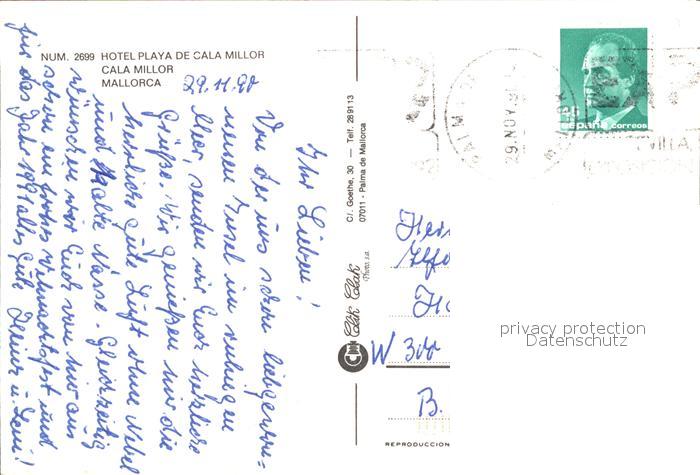 NUM. 2699 HOTEL PLAYA DE CALA MILLOR
CALA MILLOR
MALLORCA
29.11.90
Ihr Lieben!
Von der uns schon liebgewon-
nenen Insel im ruhigen
Meer, senden wir Euch herzliche
Grüße. Wir genießen nur die
herrliche gute Luft ohne Nebel
und kalte Nässe. Gleichzeitig
wünschen wir Euch von hier aus
schon ein frohes Weihnachtsfest und
für das Jahr 1991 alles Gute. Heinz u. Leni!
C/. Goethe, 30 — Telf. 289113
07011 - Palma de Mallorca
Clik Clak
Photo, s.a.
W 300
B.
REPRODUCCION
45
España correos
PALMA DE
29. NOV
privacy protection
Datenschutz